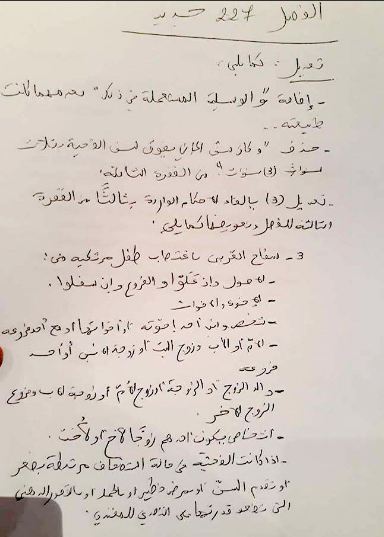 الفصل 227 جديد
تعديل : كما يلي :
- إضافة "و الوسيلة المستعملة في ذلك" بعد مهما كانت
طبيعته ..
- حذف "و كان سن الجاني يفوق سن الضحية بثلاث
سنوات " من الفقرة الثالثة.
- تعديل (3) بالغاء الأحكام الواردة بثالثًا من الفقرة
الثالثة للفصل و تعويضها كما يلي :
3 - سفاح القربى باغتصاب طفل مرتكبه من :
- الأصول وان علوا و الفروع وإن سفلوا.
- الإخوة و الأخوات
- شخص و ابن أحد إخوته أو أخواتها أو مع أحد فروعه
- الأم أو الأب و زوج البنت أو زوجة الابن أو أحد
فروعه
- والد الزوج أو الزوجة أو زوج الأم أو زوجة الأب و فروع
الزوج الآخر .
- أشخاص يكون أحدهم زوجا لأخ أو لأخت.
- اذا كانت الضحية في حالة استضعاف مرتبطة بصغر
أو تقدم السن أو بمرض خطير أو بالحمل أو بالقصور الذهني
التي تضعف قدرتها على التصدي للمعتدي.